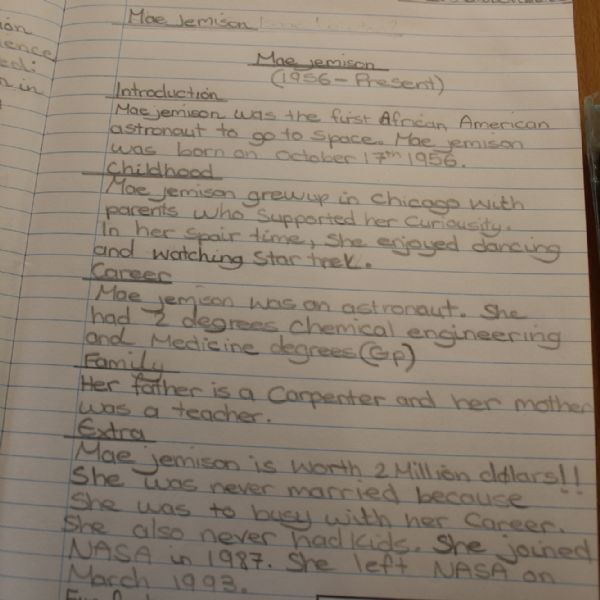 Mae Jemison
Mae jemison
(1956 - Present)
Introduction
Mae jemison was the first African American
astronaut to go to space. Mae jemison
was born on october 17th 1956.
Childhood
Mae jemison grew up in Chicago with
parents who supported her curiousity.
In her spair time, she enjoyed dancing
and watching Star trek.
Career
Mae jemison was an astronaut. She
had 2 degrees chemical engineering
and Medicine degrees (Gp)
Family
Her father is a Carpenter and her mother
was a teacher.
Extra
Mae jemison is worth 2 Million ddlars!!
She was never married because
She was to busy with her career.
She also never had kids. She joined
NASA in 1987. She left NASA on
March 1993.